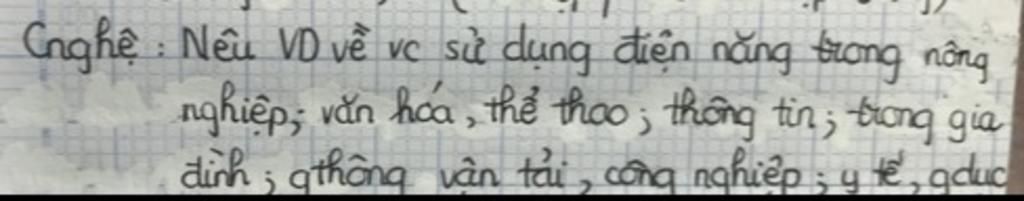 Cnghệ : Nêu VD về vc sử dụng điện năng trong nông
nghiệp; văn hóa, thể thao; thông tin; trong gia
đình; gthông vận tải, công nghiệp; y tế, gduc